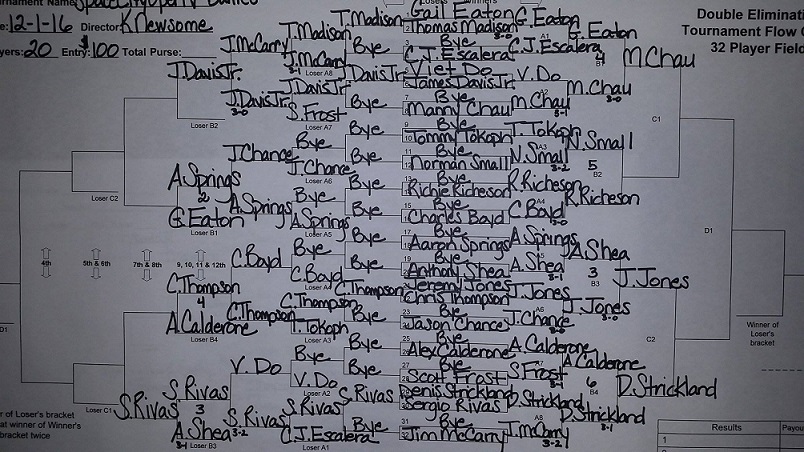 Space City Open
12-1-16 Director: K Newsome
yers: 20 Entry: $100 Total Purse:
Double Eliminati
Tournament Flow C
32 Player Field
T. Madison
T. Madison
J. McCarry
J. McCarry
Bye
Loser A8
J. Davis Jr.
J. Davis Jr.
J. Davis Jr.
J. Davis Jr.
3-0
Bye
S. Frost
Loser B2
Loser A7
Bye
Bye
J. Chance
J. Chance
Loser A6
Bye
A. Springs
2
G. Eaton
Loser B1
Loser C2
A. Springs
A. Springs
Bye
Loser A5
Bye
C. Boyd
C. Boyd
Bye
4th
5th & 6th
7th & 8th
9, 10, 11 & 12th
C. Thompson
4
A. Calderone
Loser B4
C. Thompson
C. Thompson
C. Thompson
T. Tokoph
Bye
Loser A3
D1
V. Do
V. Do
Bye
Bye
Loser A2
S. Rivas
S. Rivas
3
A. Shea
3-1
Loser B3
Loser C1
S. Rivas
3-2
S. Rivas
S. Rivas
C.J. Escalera
Bye
Loser A1
r of Loser's bracket
at winner of Winner's
bracket twice
Gail Eaton
Thomas Madison
3-0
Bye
C.J. Escalera
Viet Do
James Davis Jr.
Bye
Manny Chau
Bye
Tommy Tokoph
Bye
Norman Small
Bye
Richie Richeson
Bye
Charles Boyd
Bye
Aaron Springs
Bye
Anthony Shea
Jeremy Jones
Chris Thompson
Bye
Jason Chance
Bye
Alex Calderone
Bye
Scott Frost
Denis Strickland
Sergio Rivas
Bye
Jim McCarry
G. Eaton
C.J. Escalera
G. Eaton
4
V. Do
M. Chau
3-1
M. Chau
3-0
M. Chau
T. Tokoph
N. Small
3-2
N. Small
5
B2
R. Richeson
C. Boyd
3-0
R. Richeson
C1
A. Springs
A. Shea
3-1
A. Shea
3
B3
J. Jones
J. Chance
J. Jones
3-0
J. Jones
D1
A. Calderone
S. Frost
A. Calderone
6
B4
D. Strickland
J. McCarry
3-2
D. Strickland
3-1
D. Strickland
C2
Winner of
Loser's
bracket
Results
Payou
1
2